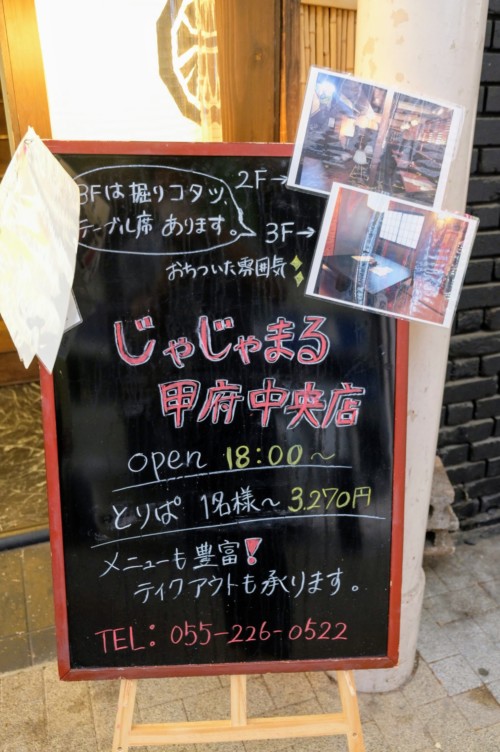 3Fは掘りコタツ、
テーブル席 あります。
2F→
3F→
おちついた雰囲気
じゃじゃまる
甲府中央店
open 18:00～
とりぱ 1名様～3.270円
メニューも豊富！
ティクアウトも承ります。
TEL: 055-226-0522